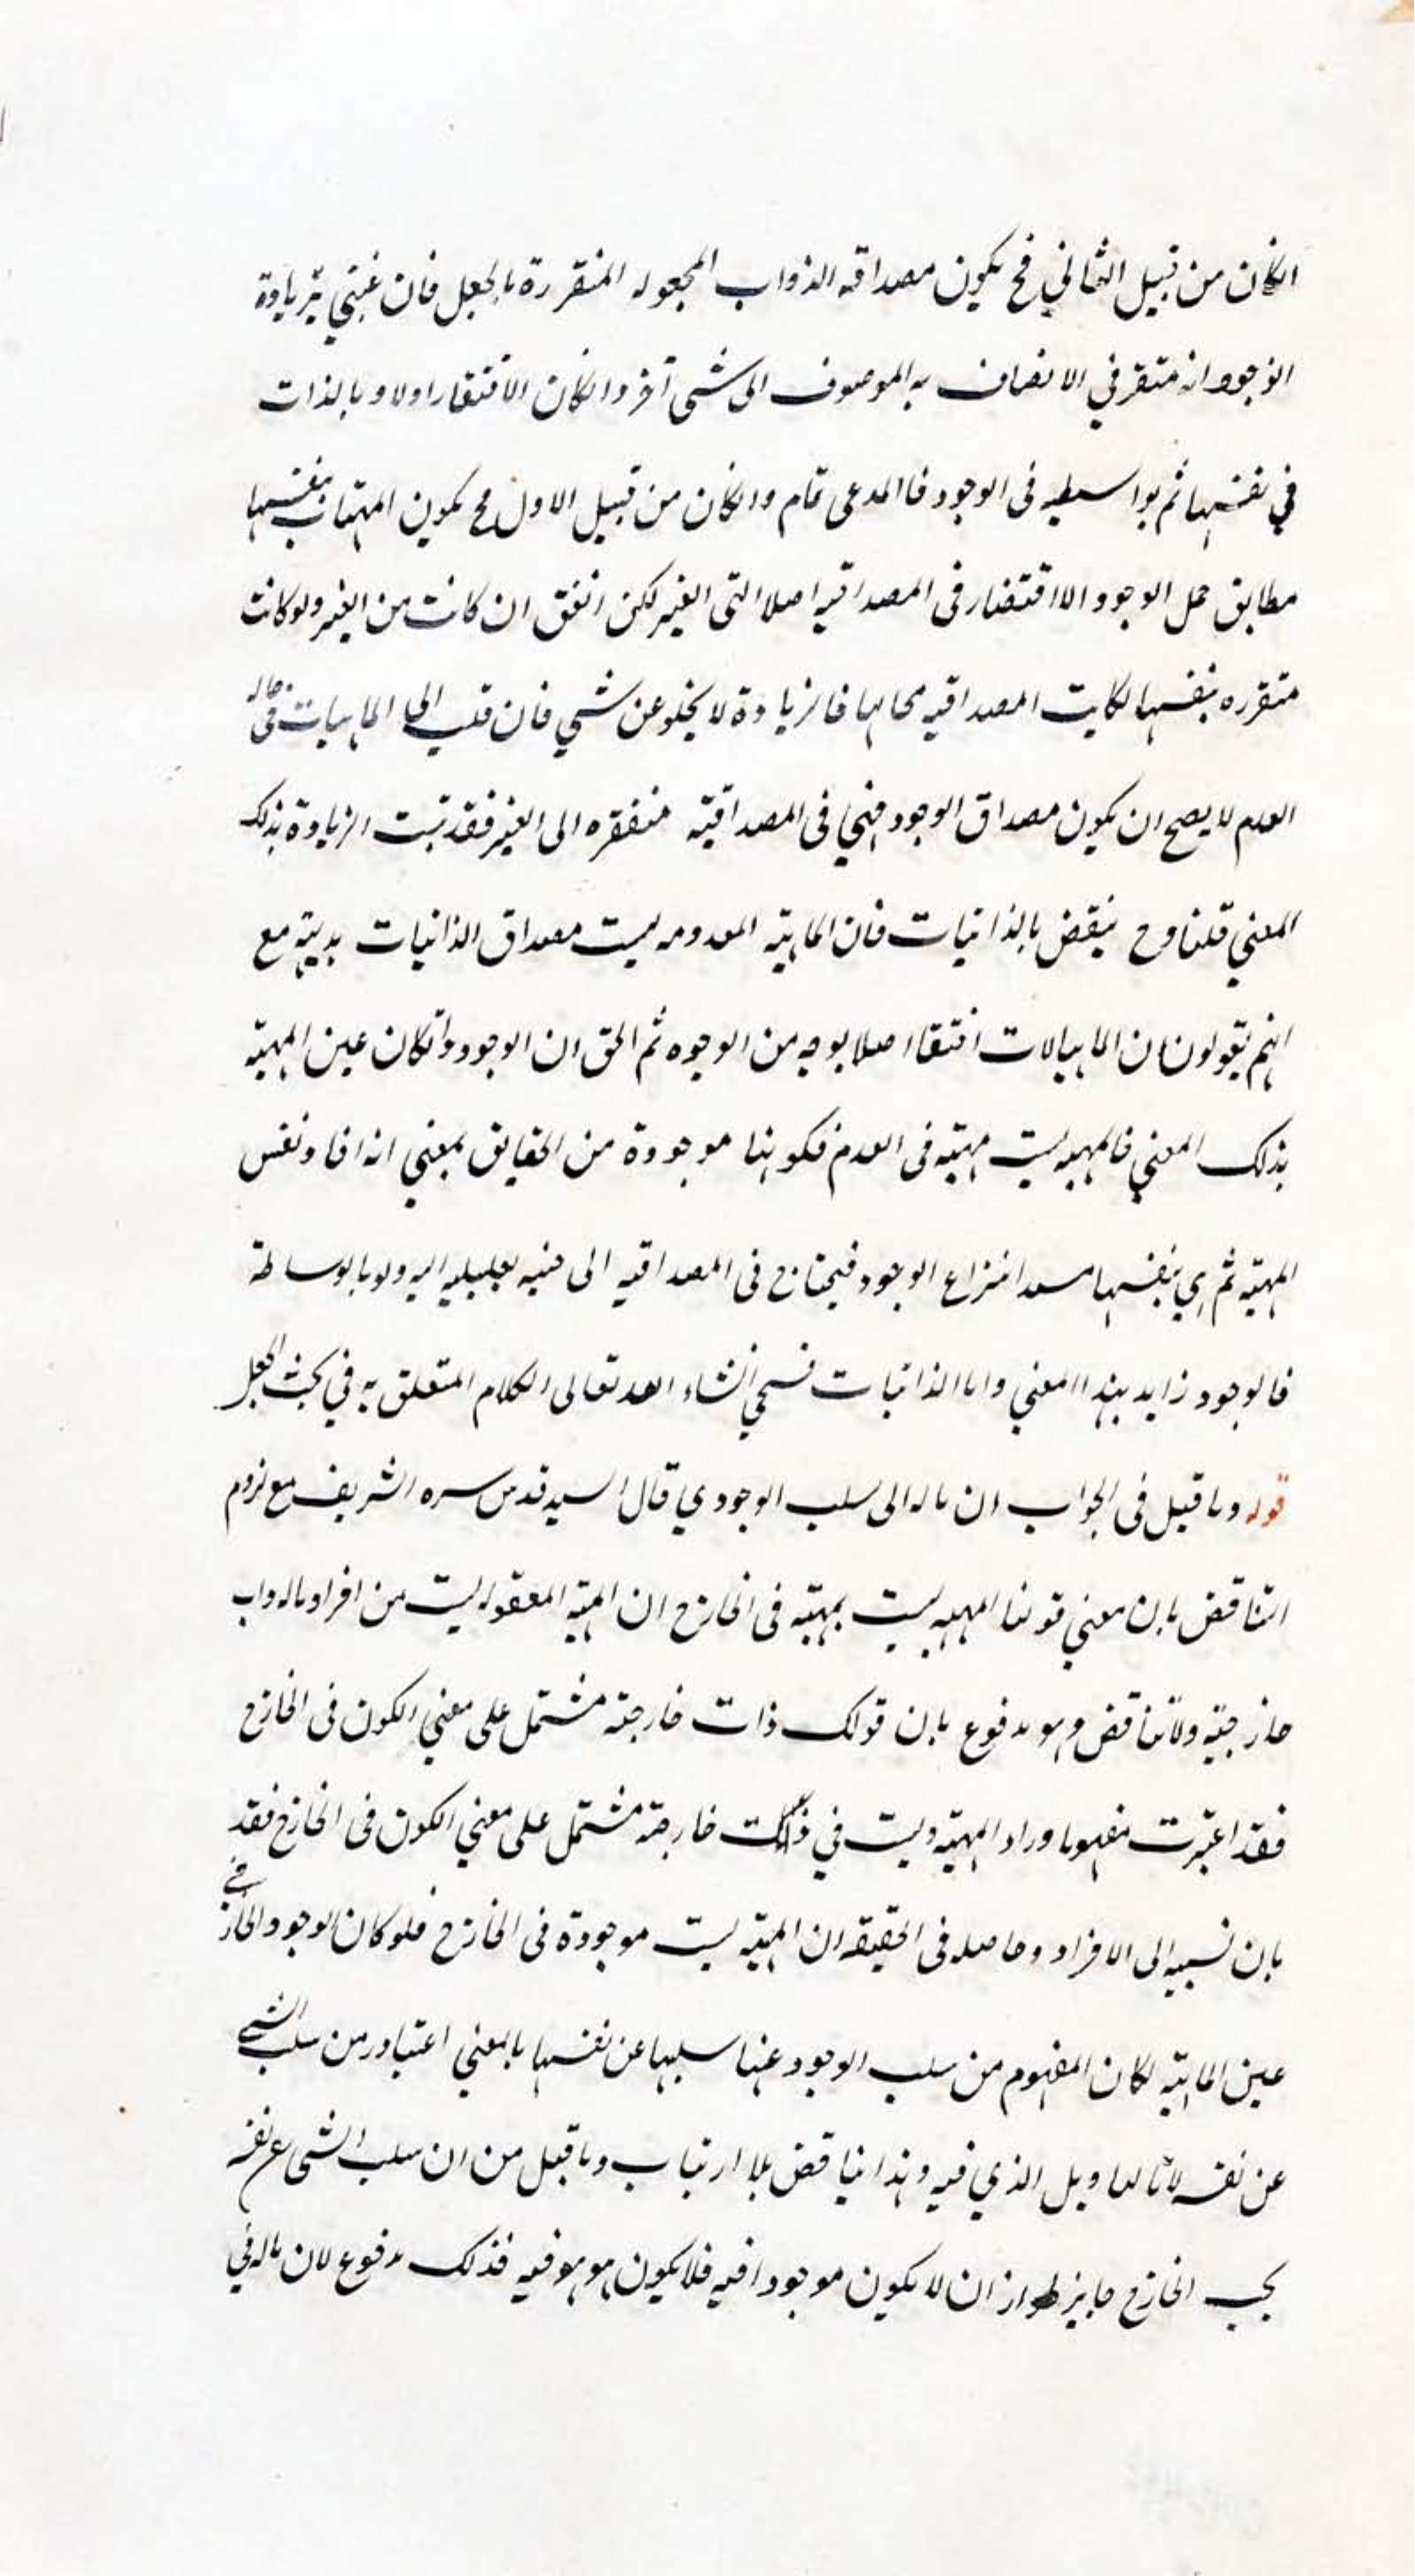 الكان من قبيل الثاني فح يكون مصداقه الذواب المجعوله المتقررة بالجعل فان غني بزيادة
الوجود انه متقر في الاتصاف به الموصوف الى شى آخر وانكان الافتقار اولا وبالذات
في نفسها ثم بواسطه فى الوجود فالمدعى تام وانكان من قبيل الاول مح يكون المهيات بنفسها
مطابق حمل الوجود الا اقتضار فى المصداقيه اصلا التى الغير لكن اتفق ان كانت من الغير ولو كانت
متقرره بنفسها لكايت المصداقيه بحالها فالزيادة لا يخلو عن شي فان قلت الى الماهيات فى حاله
العدم لا يصح ان يكون مصداق الوجود فهي فى المصداقية منفقره الى الغير فقد ثبت الزيادة بذلك
المعني قلنا وح ينقض بالذاتيات فان الماهية المعدومه ليست مصداق الذاتيات بديهة مع
انهم يقولون ان الماهيالات افتقا اصلا بوجه من الوجوه ثم الحق ان الوجود وانكان عين المهية
بذلك المعني فالمهيه ليست مهية فى العدم فكونها موجودة من الحقايق بمعني انه افاد نفس
المهية ثم هي بنفسها انتزاع الوجود فيحتاج فى المصداقيه الى اليه ولو بالوساطة
فالوجود زايد بهذا المعني واما الذاتيات فسيجي انشاء الله تعالى الكلام المتعلق به في بحث الجعل
قوله وما قيل فى الجواب ان ماله الى سلب الوجود ي قال السيد قدس سره الشريف مع لزوم
التناقض بان معني قولنا المهيه ليست بمهية فى الخارج ان المهية المعقوله ليست من افراد ماله واب
خارجية ولا تناقض وهو مدفوع بان قولك ذات خارجة مشتمل على معني الكون فى الخارج
فقد اعتبرت مفهوما وراد المهية وليت في ذلك خارجة مشتمل على معني الكون فى الخارج فقد
بان نسبه الى الافراد وحاصله فى الحقيقه ان المهية ليست موجودة فى الخارج فلو كان الوجود الخارجي
عين الماهية لكان المفهوم من سلب الوجود عنها سلبها عن نفسها بالمعني اعتبادر من سلب الشي
عن نفسه لا الذي فيه وهذا تناقض بلا ارتياب وما قيل من ان سلب الشى عن نفسه
بحب الخارج جايز لجواز ان لا يكون موجودا فيه فلا يكون هو هو فيه فذلك مدفوع لان ماله في